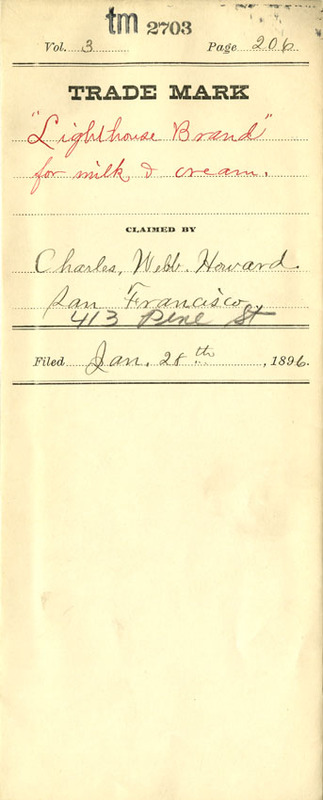 tm 2703
Vol. 3 Page 206
TRADE MARK
"Lighthouse Brand"
for milk & cream.
CLAIMED BY
Charles, Webb Howard
San Francisco.
413 Pine St
Filed Jan. 28th, 1896.